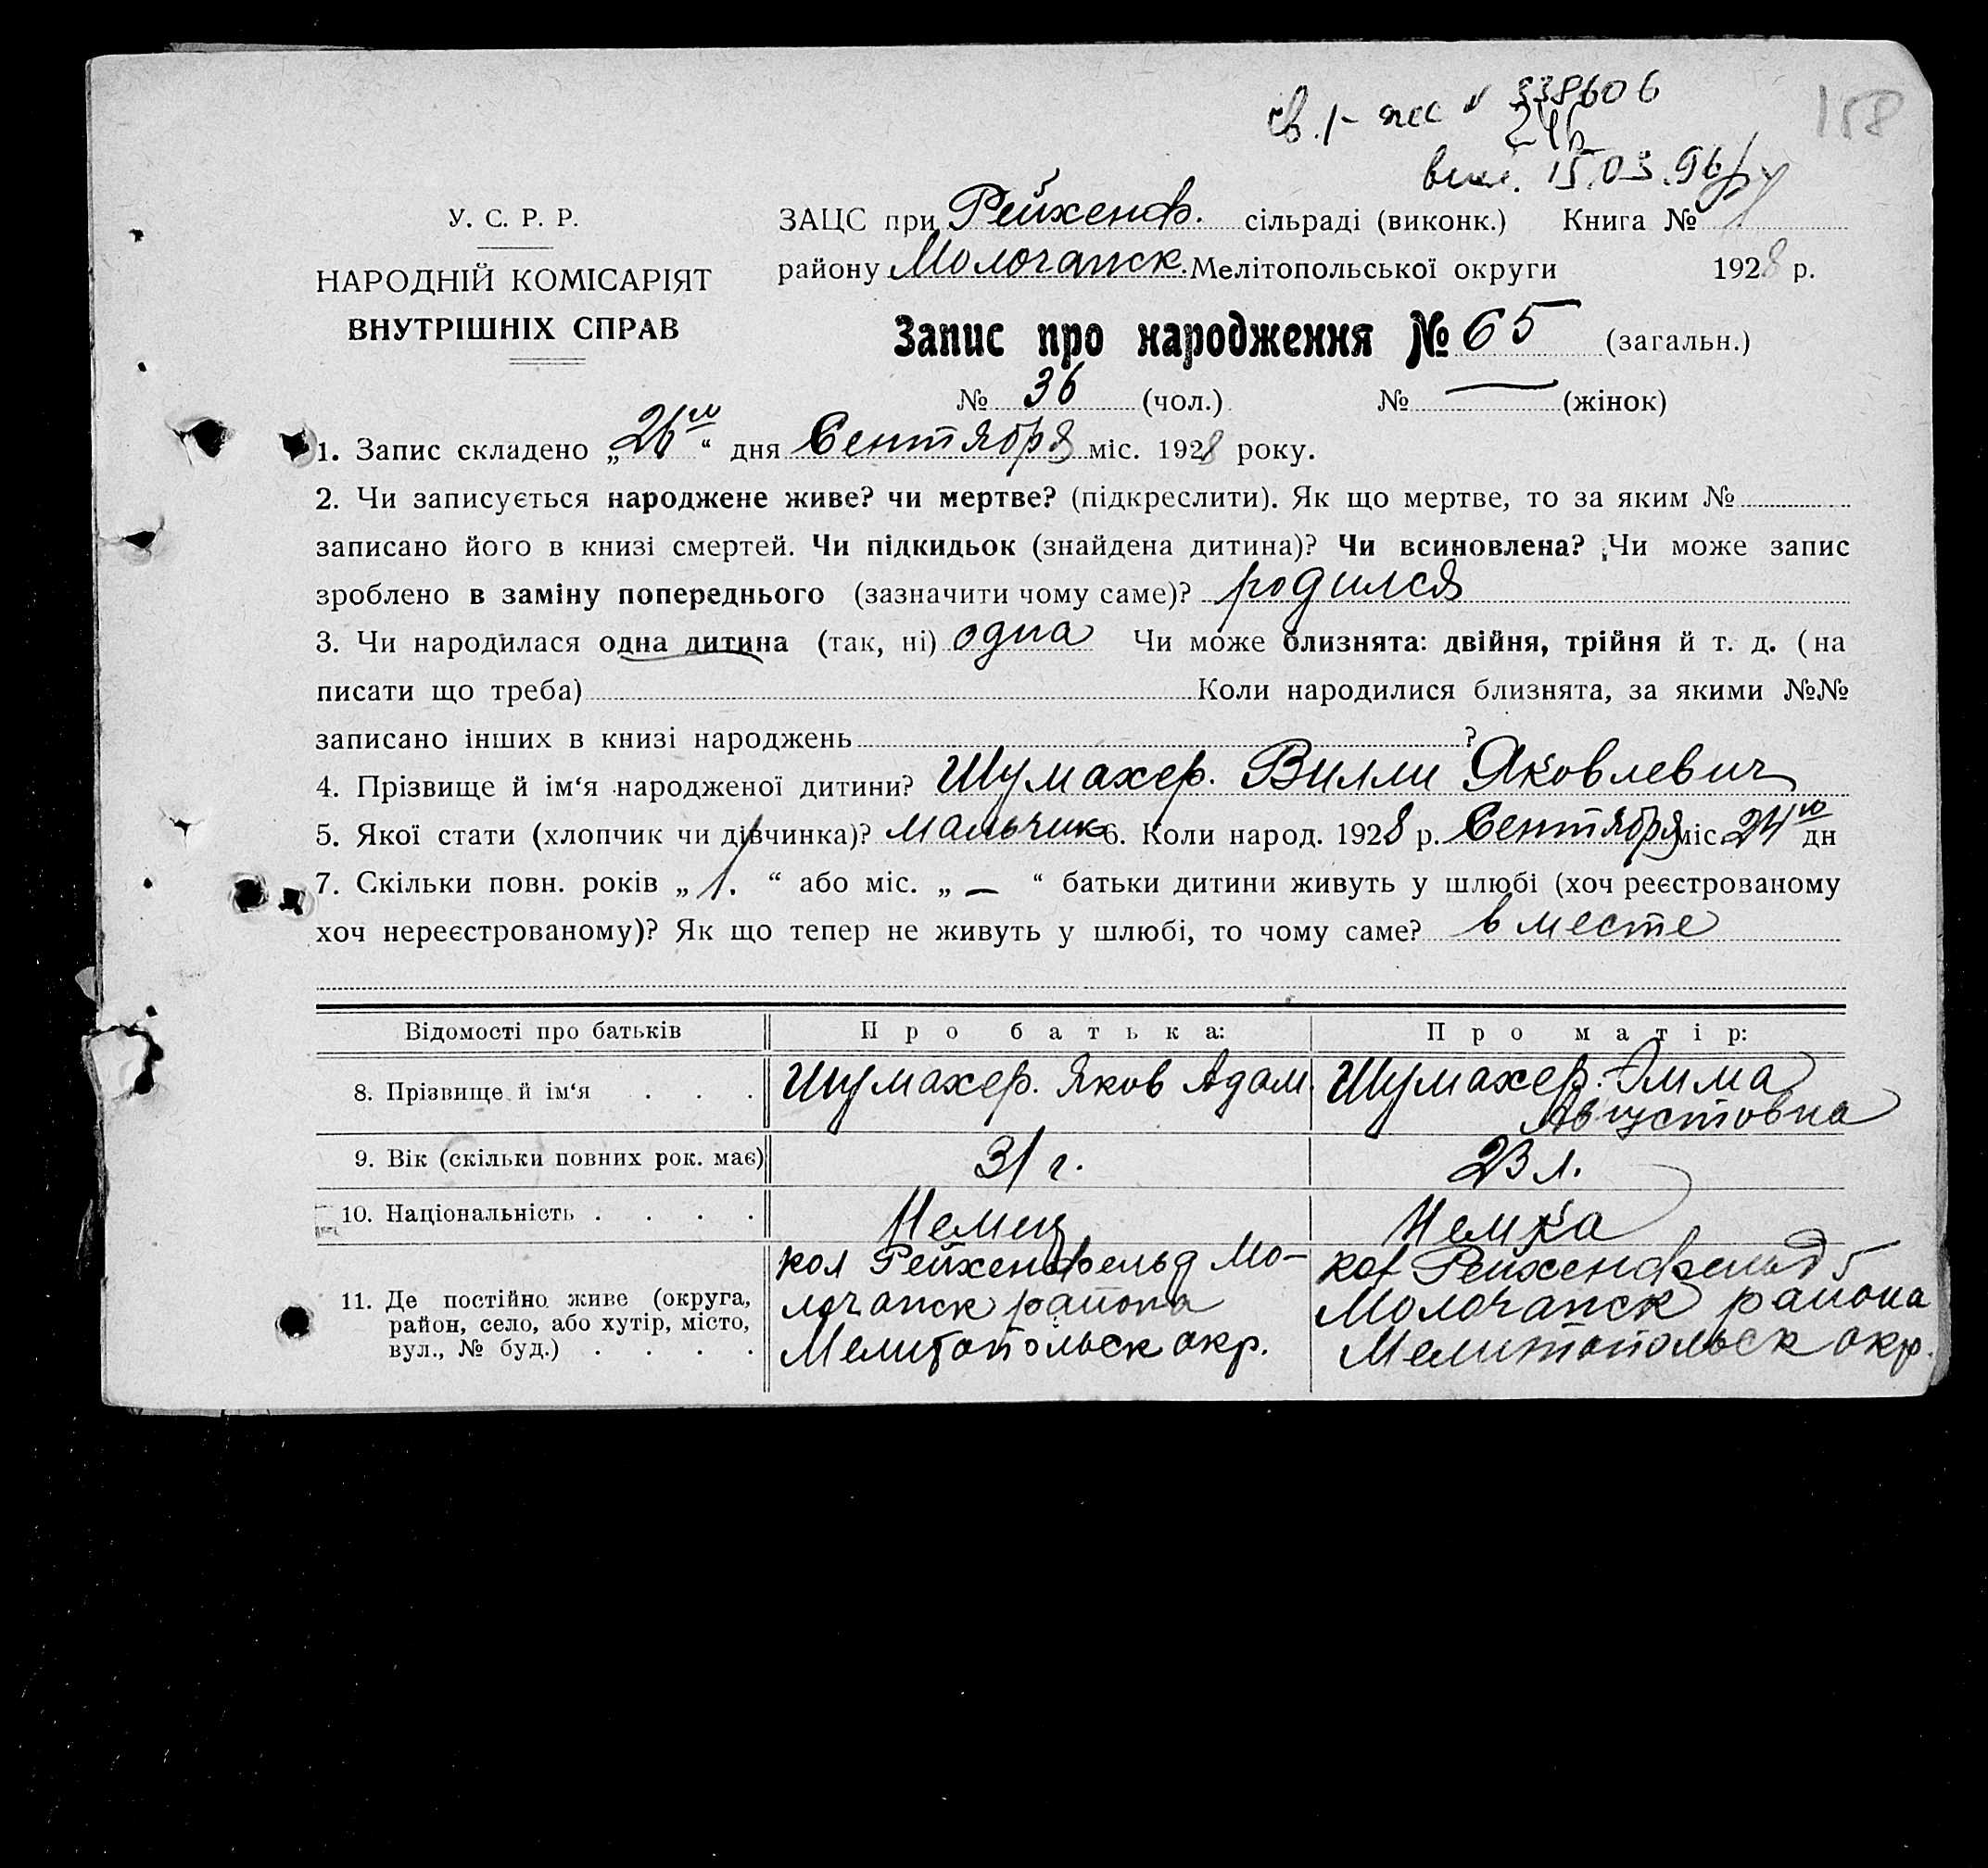 158
№ 338606
15.03.96
У. С. Р. Р.
НАРОДНІЙ КОМІСАРІЯТ
ВНУТРІШНІХ СПРАВ
ЗАЦС при Рейхенф. сільраді (виконк.) Книга №
району Молочанск. Мелітопольської округи 1928 р.
Запис про народження № 65 (загальн.)
№ 36 (чол.) № — (жінок)
1. Запис складено „26го“ дня Сентября міс. 1928 року.
2. Чи записується народжене живе? чи мертве? (підкреслити). Як що мертве, то за яким №
записано його в книзі смертей. Чи підкидьок (знайдена дитина)? Чи всиновлена? Чи може запис
зроблено в заміну попереднього (зазначити чому саме)? родился
3. Чи народилася одна дитина (так, ні) одна Чи може близнята: двійня, трійня й т. д. (на
писати що треба) Коли народилися близнята, за якими №№
записано інших в книзі народжень ?
4. Прізвище й ім‘я народженої дитини? Шумахер. Вилли Яковлевич
5. Якої стати (хлопчик чи дівчинка)? мальчик 6. Коли народ. 1928 р. Сентября міс. 24го дн
7. Скільки повн. років „ 1. “ або міс. „ — “ батьки дитини живуть у шлюбі (хоч реєстрованому
хоч нереєстрованому)? Як що тепер не живуть у шлюбі, то чому саме? вместе
Відомості про батьків Про батька: Про матір:
8. Прізвище й ім‘я . . . Шумахер. Яков Адам. Шумахер. Эмма
Августовна
9. Вік (скільки повних рок. має) 31 г. 23 л.
10. Національність . . . . Немец Немка
11. Де постійно живе (округа, район, село, або хутір, місто, вул., № буд.) . . . .
кол Рейхенфельд Мо-
лочанск района
Мелитопольск окр.
кол Рейхенфельд
Молочанск района
Мелитопольск окр.